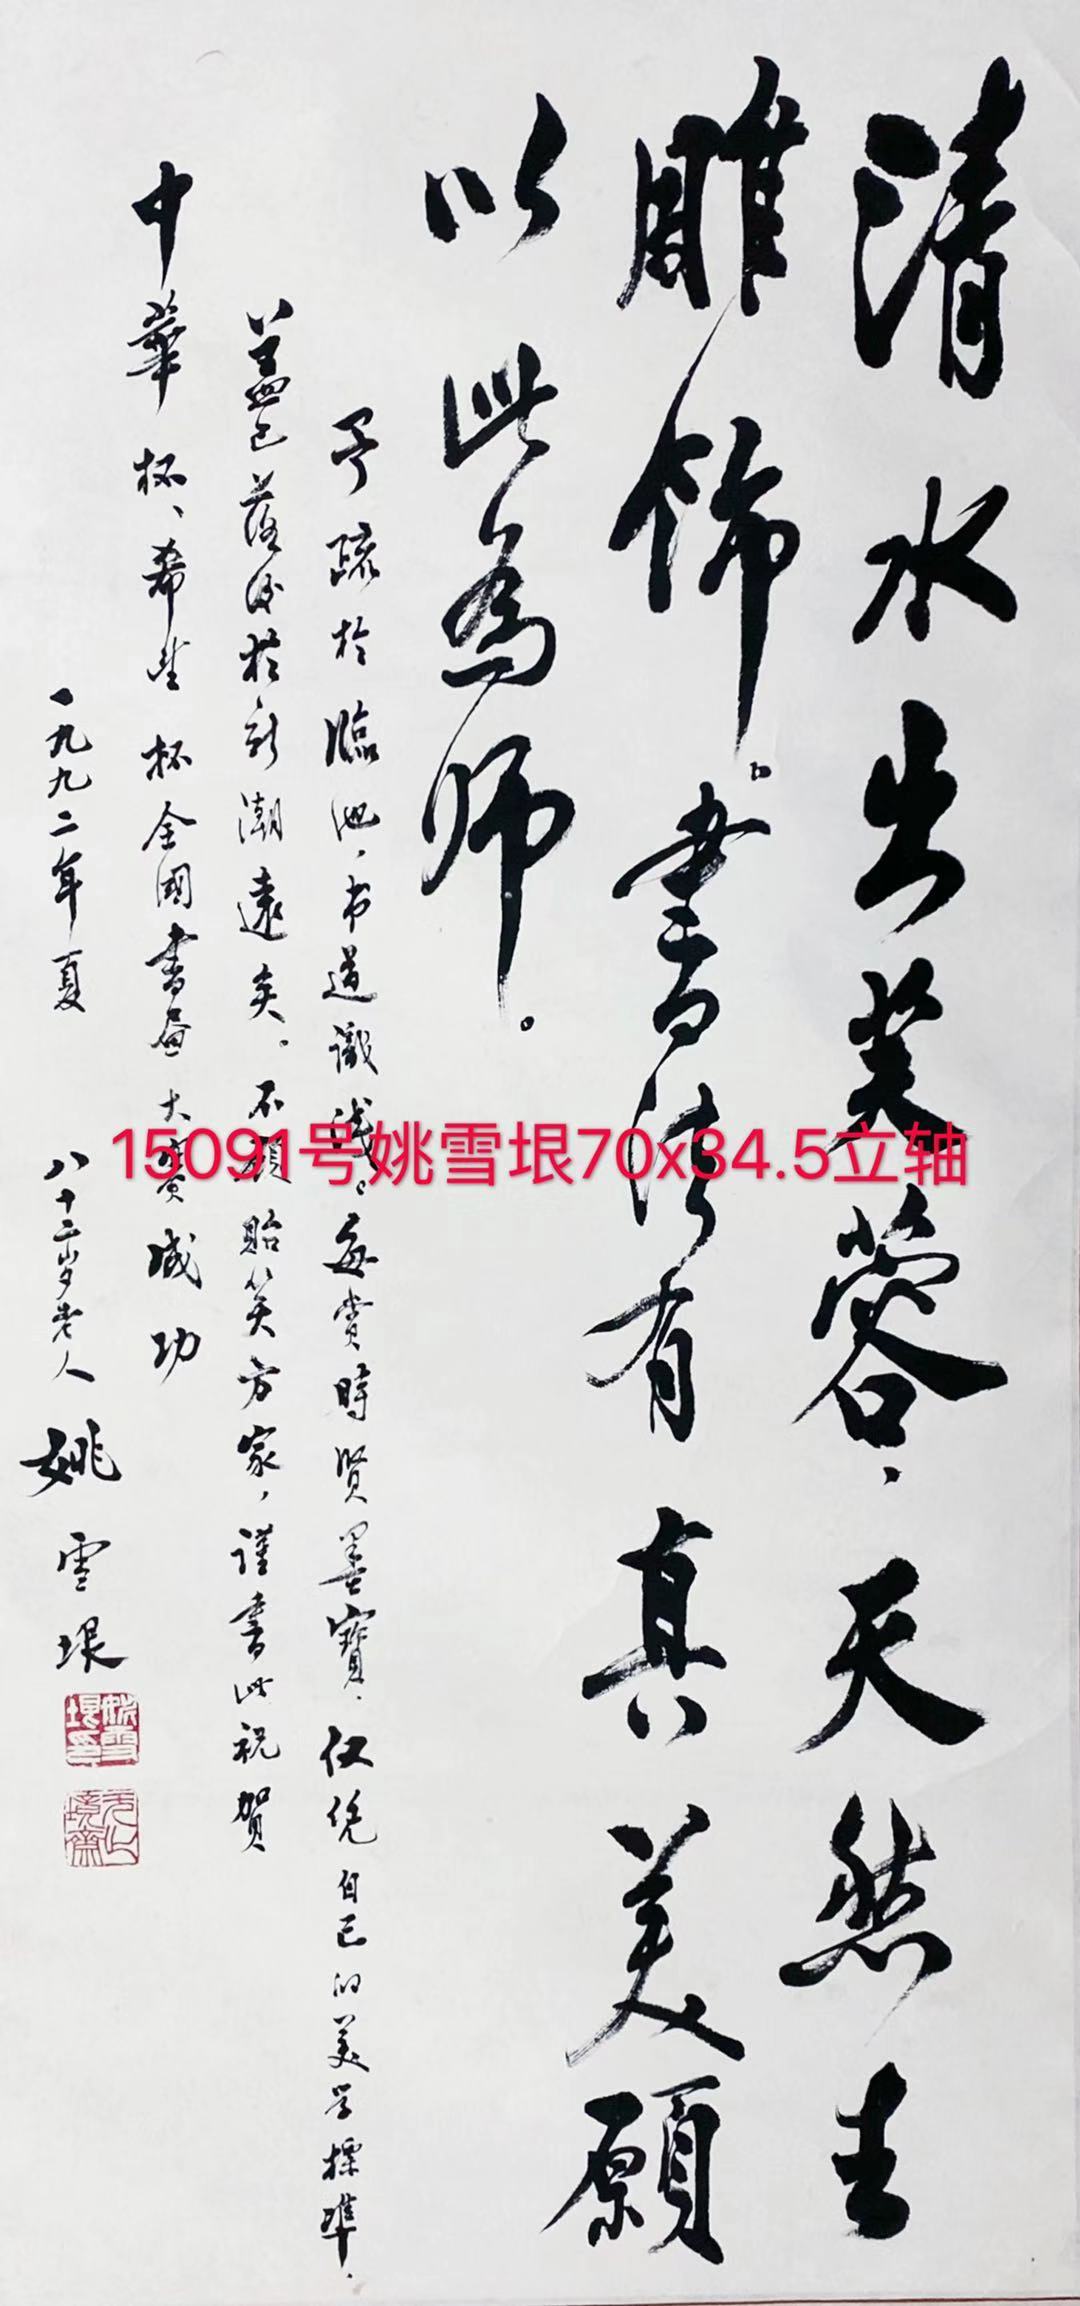 清水出芙蓉，天然去
雕饰。書法有真美願
以此為师。
予疏於臨池，书道識浅。每赏時贤墨寶，仅凭自己的美学標準，
盖已落後於新潮遠矣。不顧貽笑方家，谨書此祝賀
中華杯、希望杯全國書畫大赛成功
一九九二年夏 八十二岁老人 姚雪垠
姚雪垠印
无止境斋
15091号姚雪垠70x34.5立轴